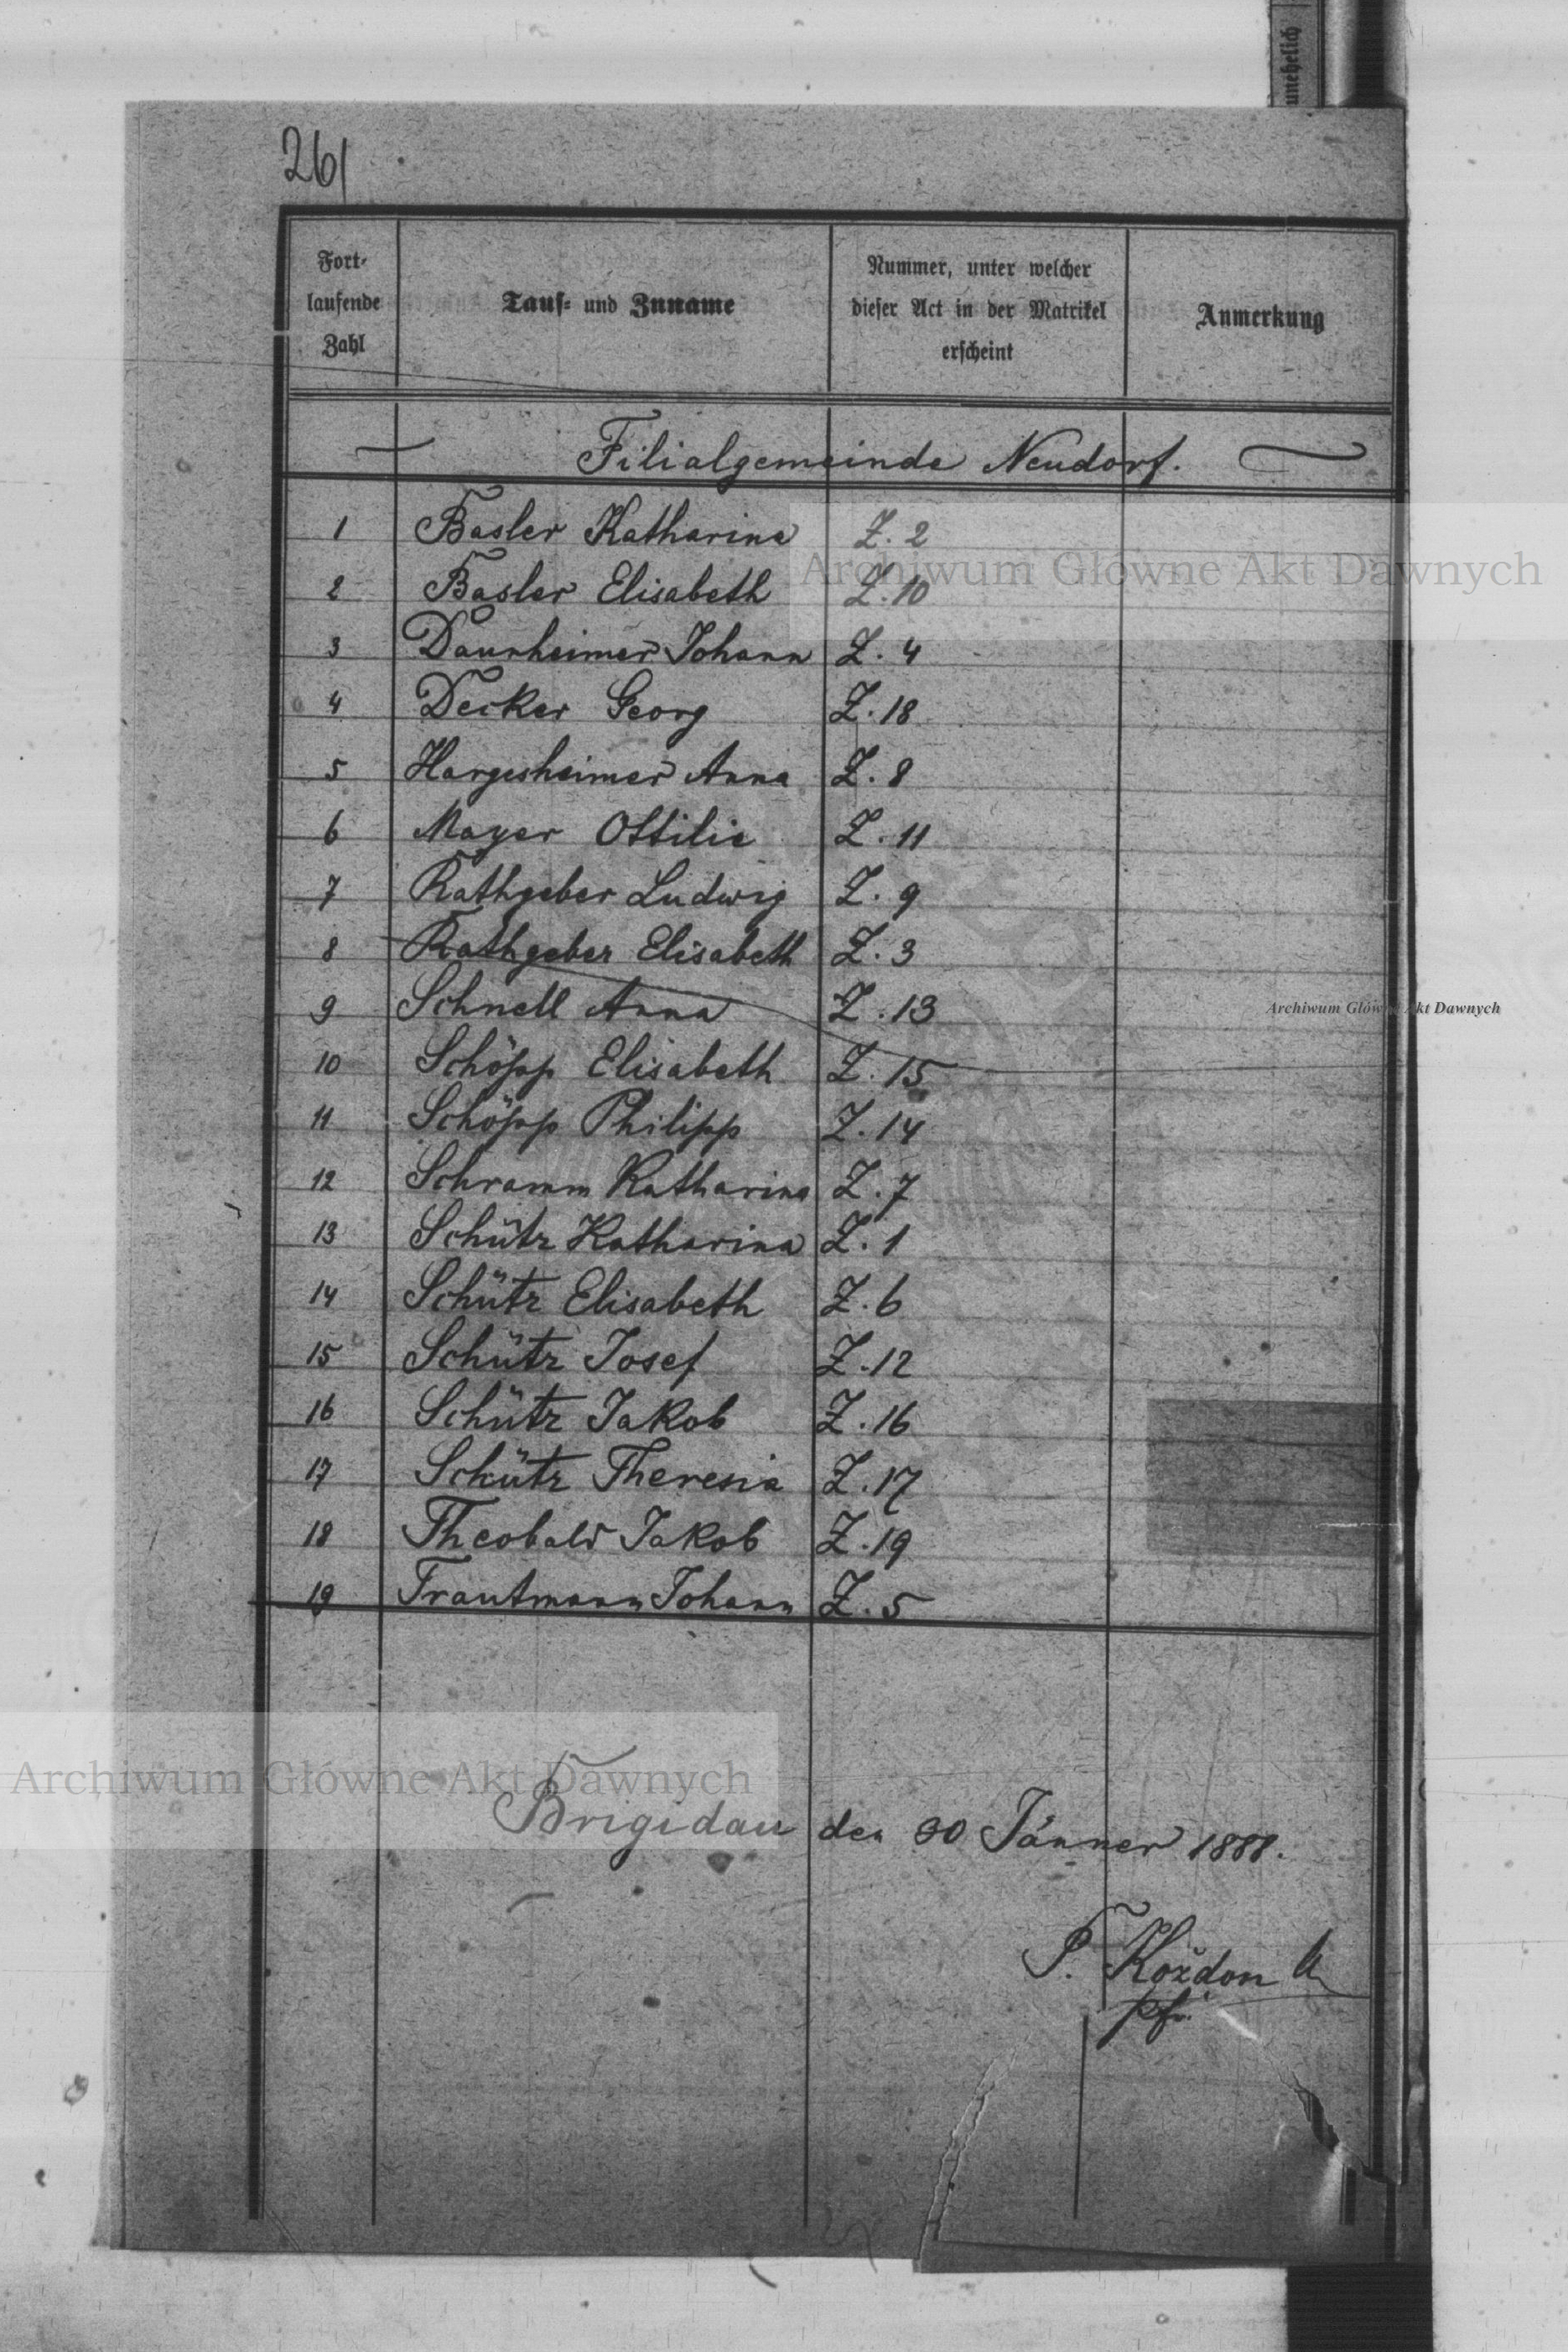 unehelich
261
Fort-
laufende
Zahl
Tauf- und Zuname
Nummer, unter welcher
dieser Act in der Matrikel
erscheint
Anmerkung
Filialgemeinde Neudorf.
1 Basler Katharina Z. 2
2 Basler Elisabeth Z. 10
3 Daunheimer Johann Z. 4
4 Decker Georg Z. 18
5 Hargesheimer Anna Z. 8
6 Mayer Ottilie Z. 11
7 Rathgeber Ludwig Z. 9
8 Rathgeber Elisabeth Z. 3
9 Schnell Anna Z. 13
10 Schöpp Elisabeth Z. 15
11 Schöpp Philipp Z. 14
12 Schramm Katharina Z. 7
13 Schütz Katharina Z. 1
14 Schütz Elisabeth Z. 6
15 Schütz Josef Z. 12
16 Schütz Jakob Z. 16
17 Schütz Theresia Z. 17
18 Theobald Jakob Z. 19
19 Trautmann Johann Z. 5
Brigidau den 30 Jänner 1888.
P. Koždon
pfr.
Archiwum Główne Akt Dawnych
Archiwum Główne Akt Dawnych
Archiwum Główne Akt Dawnych